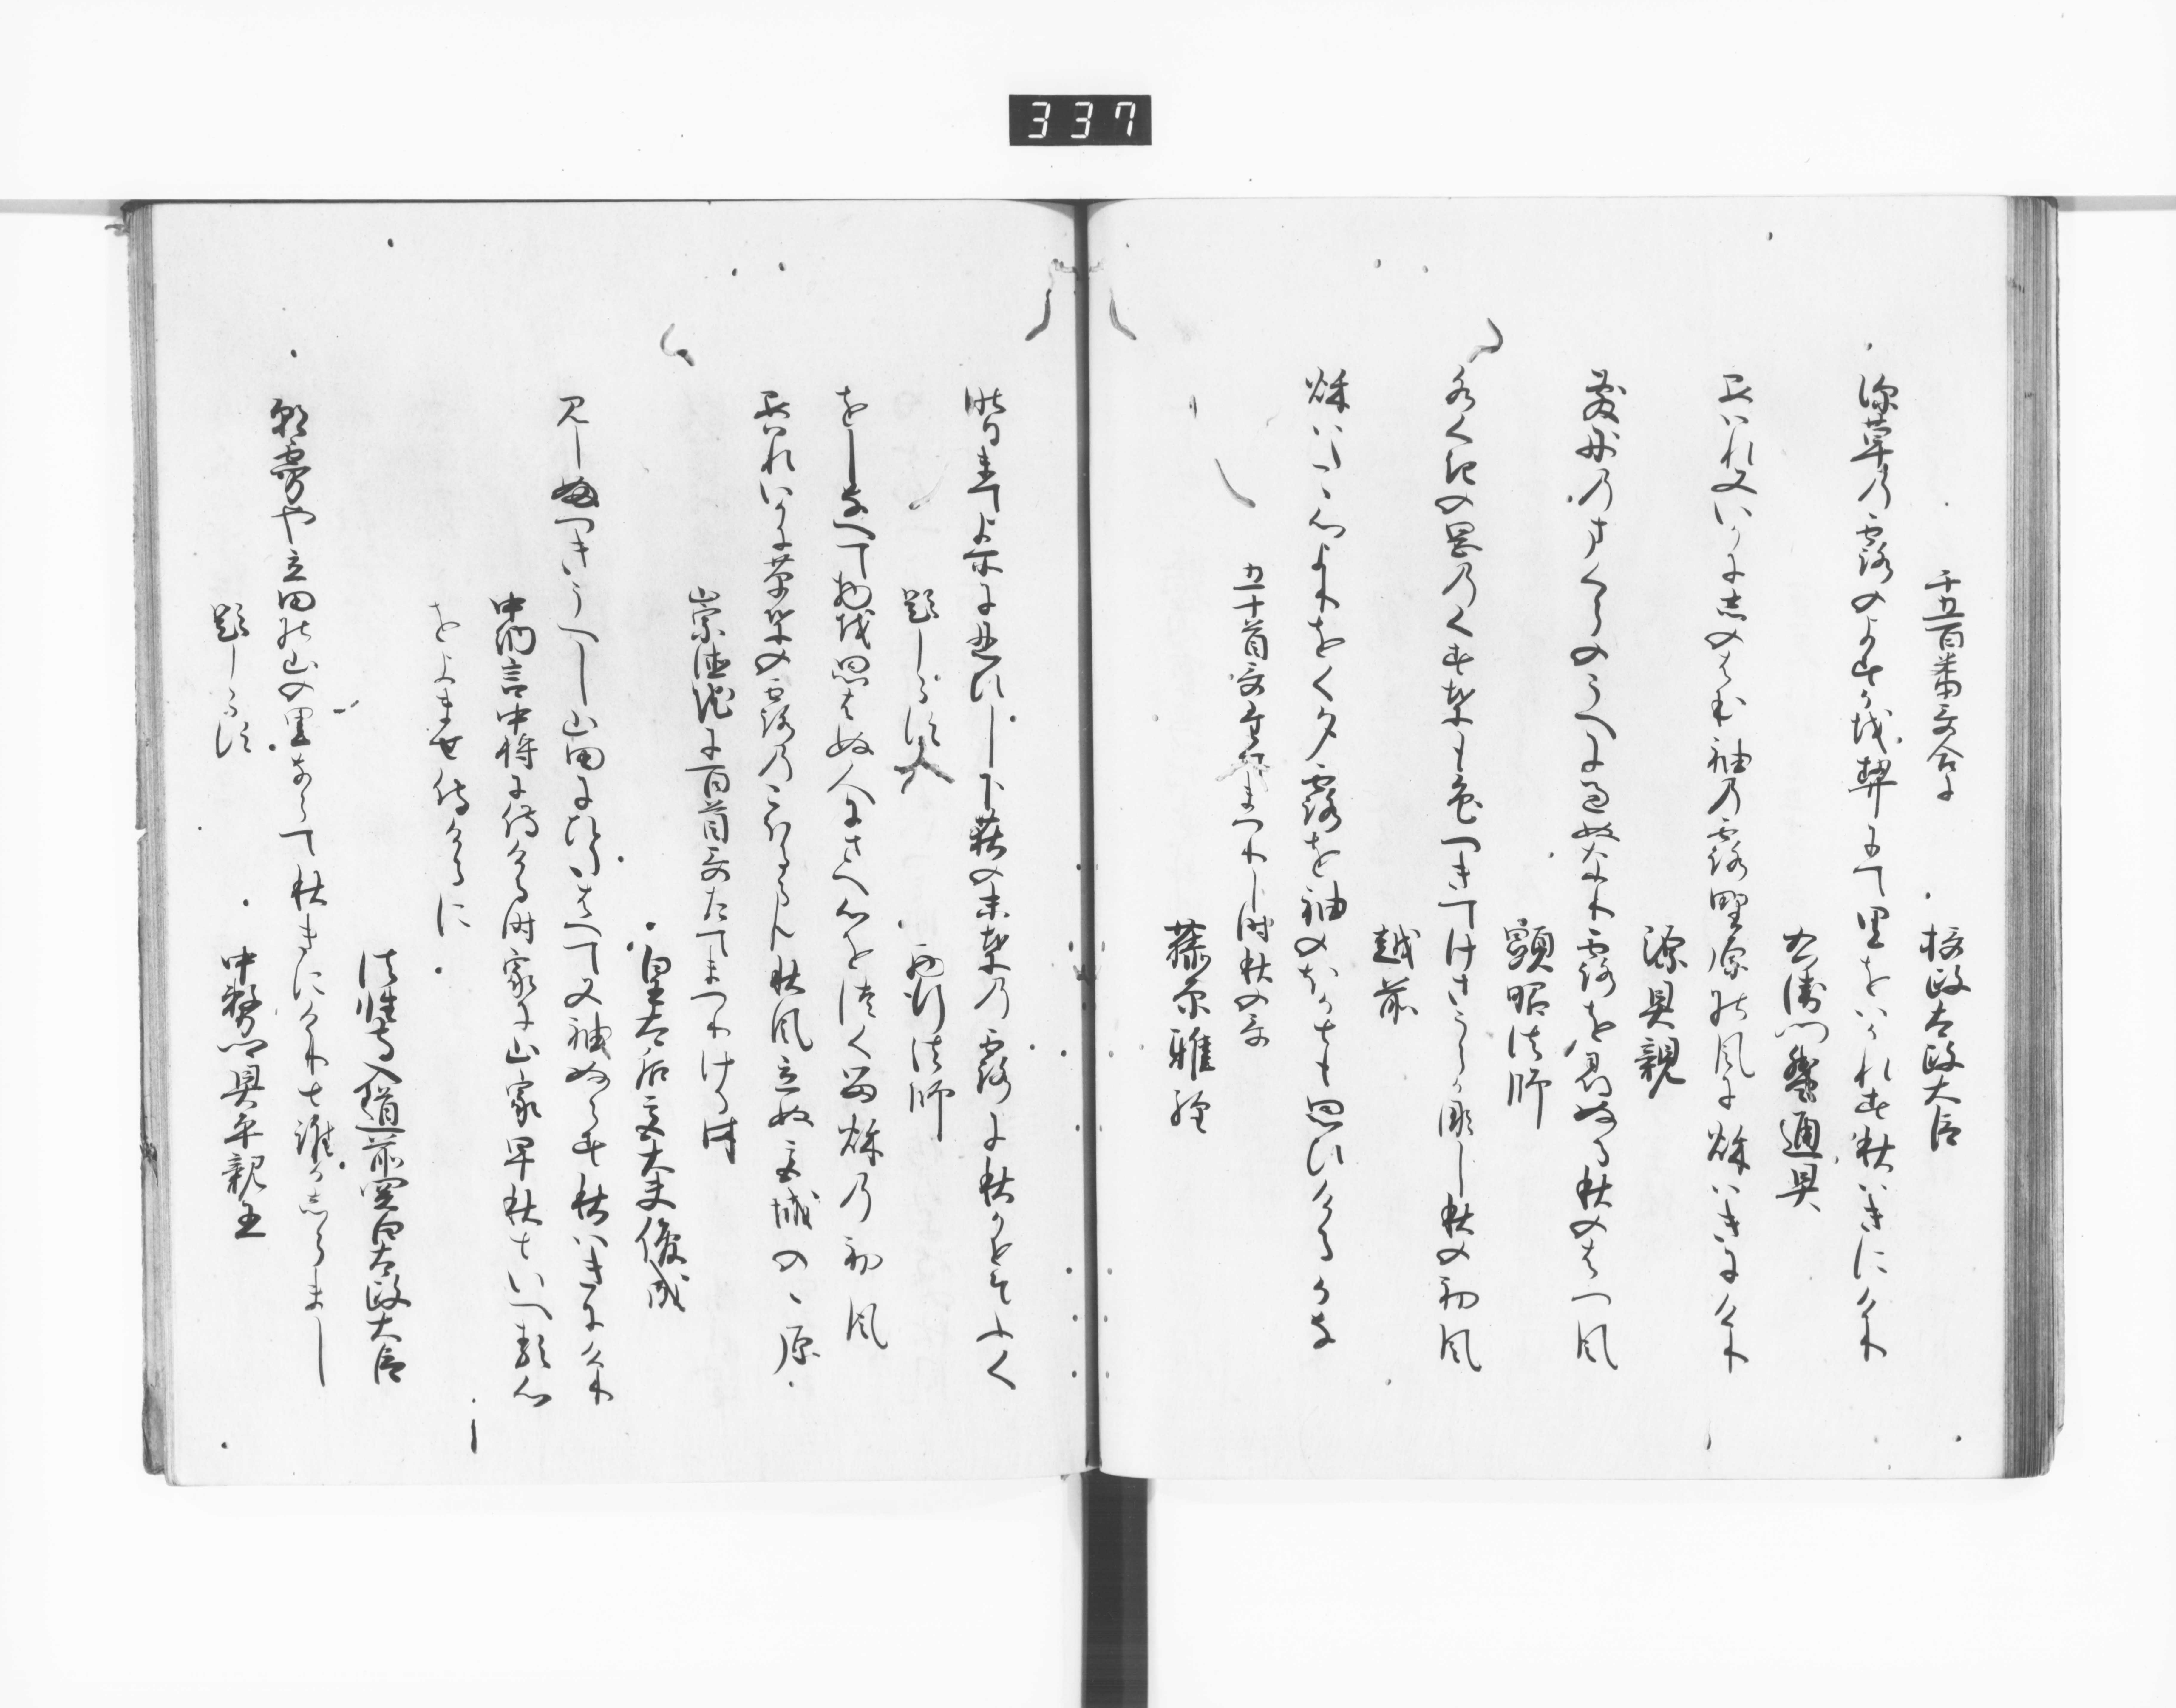 337
千五百番哥合に　摂政太政大臣
深草乃露のよすか越契にて里をいかれす秋はきにけり
右衛門督通具
哀れ又いかに志のはむ袖乃露野原の風に秌はきにけり
源具親
敷妙乃まくらのうへに過ぬなり露を尋ぬる秋のはつ風
顕昭法師
水くきの岡乃くす葉も色つきてけさうら悲し秋の初風
越前
秌はたゝ心よりをく夕露を袖のほかとも思ひけるかな
五十首哥奉りし時秋の哥
藤原雅経
昨日まてよそに忍ひし下荻の末葉乃露に秋かせそふく
題しらす　西行法師
をしなへて物越思はぬ人にさへ心を津くる秌乃初風
哀れいかに草葉の露乃こほるらん秋風立ぬ宮城のゝ原
崇徳院に百首哥たてまつりける時
皇太后宮大夫俊成
みしふつきうへし山田にひたはへて又袖ぬらす秋はきにけり
中納言中将に侍ける時家に山家早秋といへる心
をよませ侍けるに
法性寺入道前関白太政大臣
朝霧や立田の山の里ならて秋きにけりと誰か志らまし
題しらす　中務卿具平親王